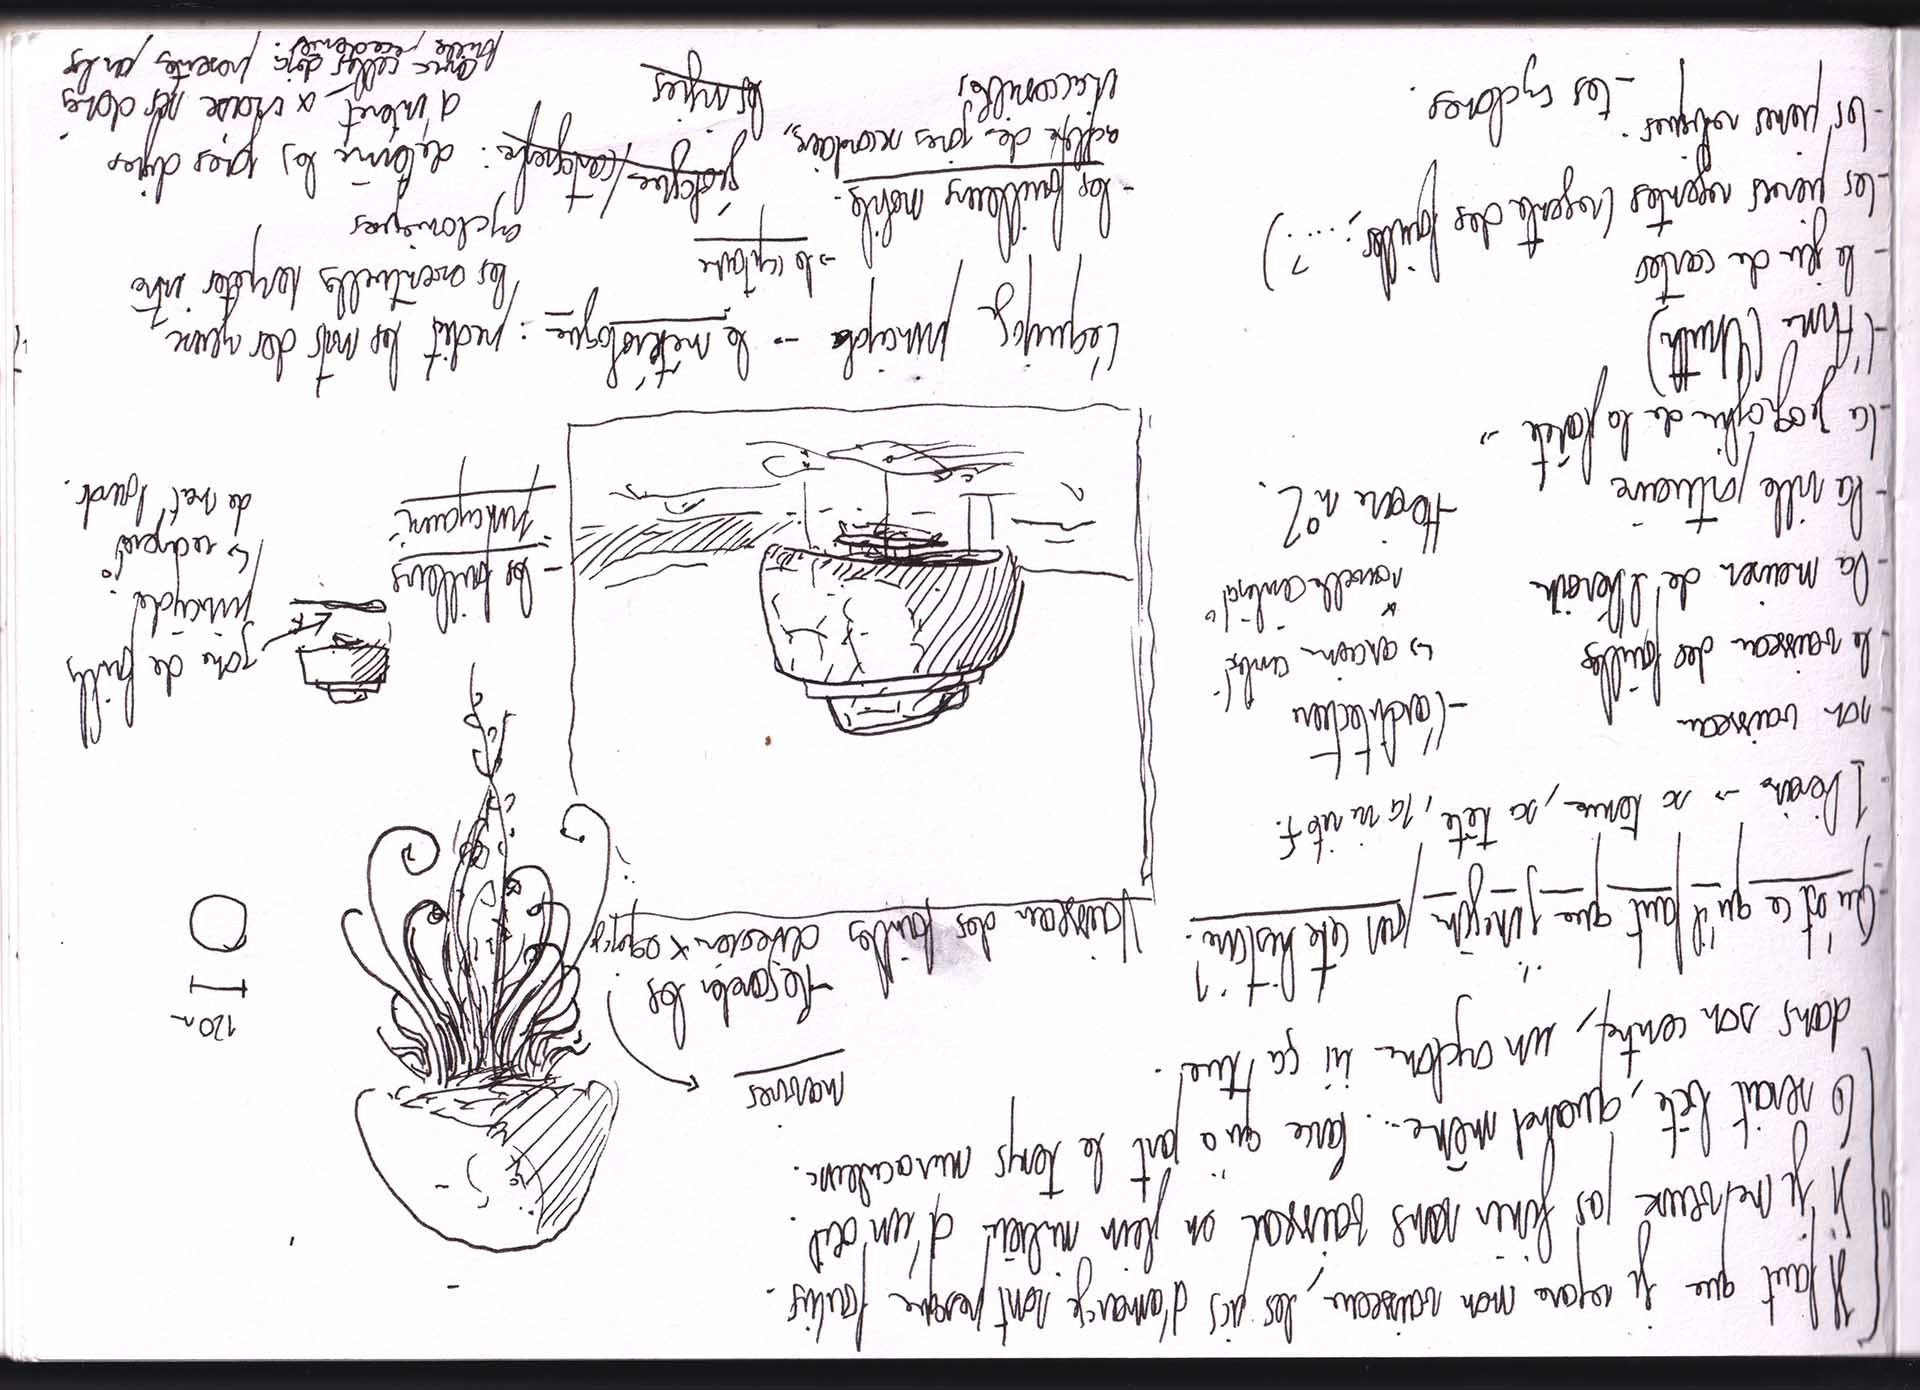 Il faut que je répare mon vaisseau, les pics d'amarrage sont presque foutus.
Si je ne veux pas finir sans vaisseau en plein milieu d'un œil.
Ce serait bête, quand même... Parce qu'à part le temps miraculeux
dans son centre, un cyclone ici ça tue.
Qu'est ce qu'il faut que j'imagine pour cette histoire?
- 1 héroïne → sa tenue, sa tête, sa
- son vaisseau
- le vaisseau des fouilles
- la maison de l'héroïne
- la ville portuaire
- la géographie de la planète →
- l'Arme
- le jeu de cartes
- les pierres régentes (régente des fouilles; ...?)
- les pierres reliques.
- les cyclones.
- l'architecture
↳ ancienne civilisat°
x
nouvelle civilisat°
- Héroïne n°2.
navires
- Regarder les
Vaisseau des fouilles
120m
zone de fouilles
principale.
↳ récupérat°
de mat lourds.
- les fouilleurs
"principaux"
L'équipage principale → le météorologue : prédit les mvts des yeux,
les éventuelles tempêtes inter
cycloniques
→ le capitaine
- les fouilleurs mobiles.
de zones secondaires,
inaccessibles
géologue/cartographe : détermine les zones dignes
d'intérêt x croise ses données
avec celles déjà présentes par les
fouilles précédentes.
les vigies